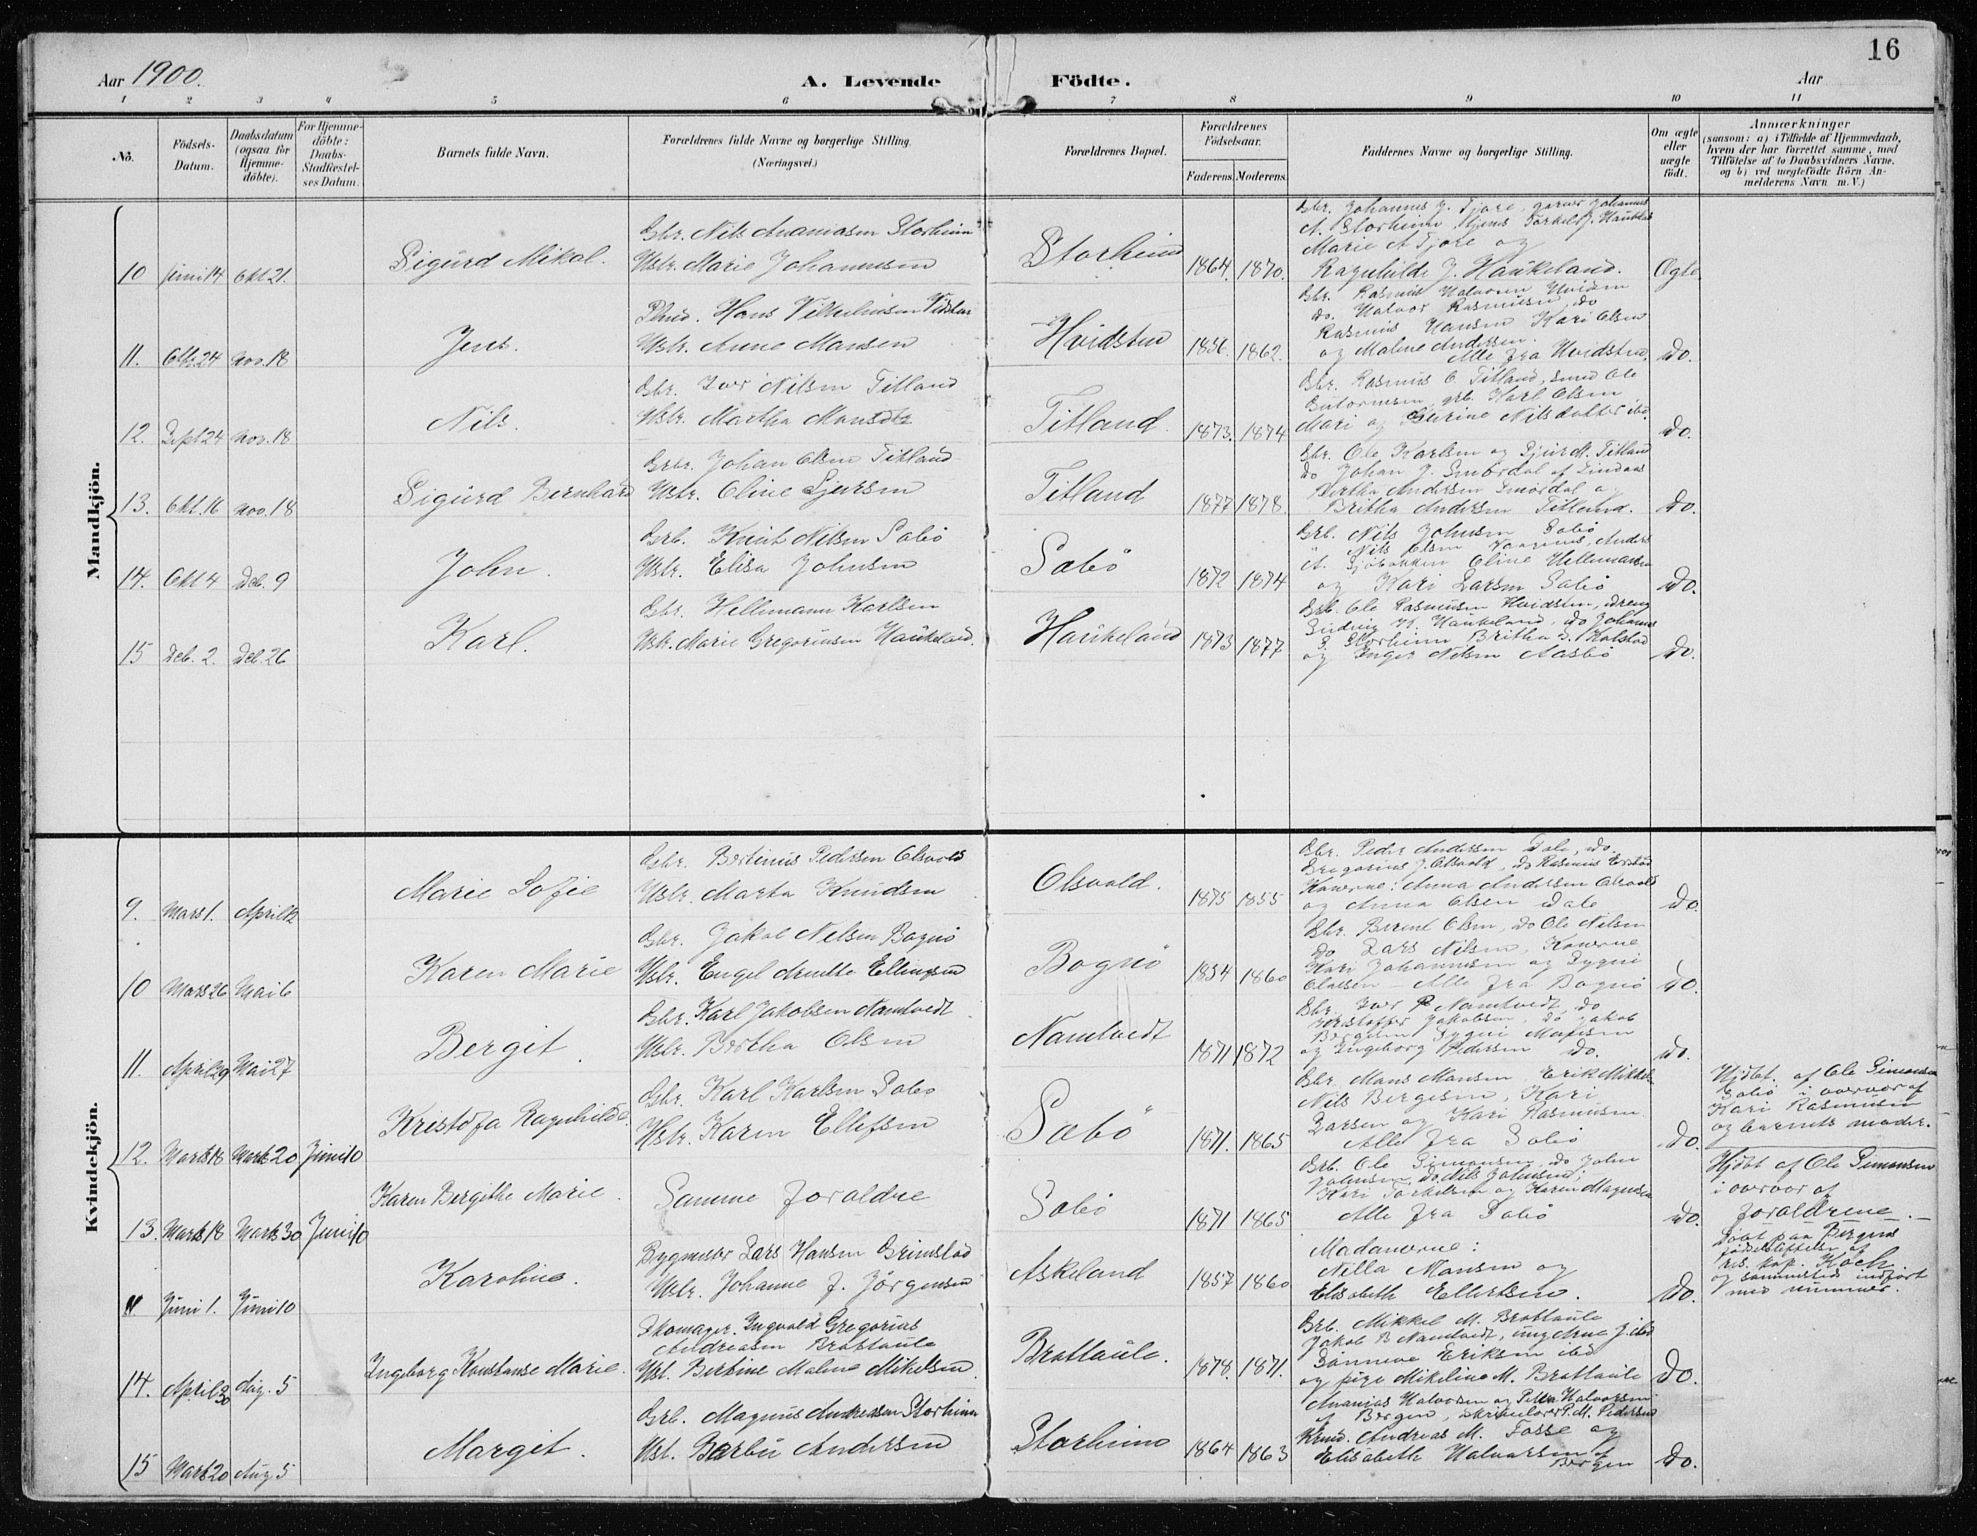 16
Aar 1900. A. Levende Födte. Aar
1 2 3 4 5 6 7 8 9 10 11
No.
Födsels-
Datum.
Daabsdatum
(ogsaa for
Hjemme-
döbte).
For Hjemme-
döbte:
Daabs-
Stadfæstel-
ses Datum.
Barnets fulde Navn.
Forældrenes fulde Navne og borgerlige Stilling.
(Næringsvei.)
Forældrenes Bopæl.
Forældrenes
Födselsaar.
Faderens. Moderens.
Faddernes Navne og borgerlige Stilling.
Om ægte
eller
uægte
födt.
Anmærkninger
(saasom: a) i Tilfælde af Hjemmedaab,
hvem der har forrettet samme, med
Tilföielse af to Daabsvidners Navne.
og b) ved uægtefödte Börn An-
melderens Navn m. V.)
Mandkjön.
10 Juni 14 Okt. 21. Sigurd Mikal.
Gbr. Nils Storheim
Hstr. Marie Johannesen
Storheim 1864. 1870.
Marie A Fjore og
Ragnhilde J. Haukeland. Ægte
11. Okt. 24 Nov. 18 Jens.
Hans Vilhelmsen
Hstr. Anne Monsen
Hvidsten 1856. 1862.
Gbr. Rasmus Halvorsen
do. Halvor Rasmussen, do
Rasmus Hansen Kari Olsen
og Malene Andersen.
Alle fra Hvidsten. do.
12. Sept 24 Nov. 18 Nils.
Gbr. Iver Nilsen Titland
Hstr. Martha Monsdtr
Titland. 1873. 1874
Gbr. Rasmus O. Titland, Smed Ole
Gbr. Karl Olsen
Mari og Gurine Nilsdatter ibd. do.
13. Okt. 16 Nov. 18 Sigurd Bernhard
Gbr. Johan Olsen Titland
Hstr. Oline Sjursen
Titland 1877 1878.
Gbr. Ole Karlsen og Sjur M. Titland
do Johan J. af Lindaas
Bertha Andersen og
Britha Andersen Titland. do.
14. Okt 4 Deb. 9 John.
Grb. Knut Nilsen Sæbö
Hstr. Elisa Johnsen
Sæbö 1872 1874
Grb. Nils Johnsen Sæbö
Nils Olsen Anders
Oline
og Kari Larsen Sæbö do.
15 Deb. 2. Deb. 26 Karl.
Gbr. Hellemann Karlsen
Hstr. Marie Gregoriusen Haukeland.
Haukeland 1873 1877
Grb. Ole Rasmussen dreng
Ludvig H. Haukeland, do Johannes
S. Storheim Britha
og Inger Nilsen do.
Kvindekjön.
9. Mars 1. April 12 Marie Sofie
Gbr. Bertinus Pedersen Olsvold
Hstr. Marta Knudsen
Olsvold. 1875 1855
Gbr. Peder Andersen Dale, do.
Gregorius J. Olsvold, do Rasmus
Konerne: Anna Andersen Olsvold
og Anna Olsen Dale do
10 Mars 26 Mai 6 Karen Marie
Gbr. Jakob Nilsen Bognö
Hstr. Engel Ellingsen
Bognö 1854 1860
Gbr. Berent Olsen, do Ole Nilsen
do Lars Nilsen, Konerne
Kari Johannesen og Sygni
Claesen – Alle fra Bognö do.
11. April 29 Mai 27 Bergit.
Gbr. Karl Jakobsen Namtvedt
Hstr. Bertha Olsen
Namtvedt 1871 1872
Gbr. Iver P Namtvedt, do
Kristoffer Jakobsen, do Jakob
Sygni
og Engeborg Pedersen do. do.
12. Marts 18 Marts 20 Juni 10 Kristofa Ragnhilde
Gbr. Karl Karlsen Sæbö
Hstr. Karen Ellefsen
Sæbö 1871. 1865
Gbr. Mons Monsen, Erik Mikkels
Nils Bergesen, Kari
Larsen og Kari Rasmussen
Alle fra Sæbö do.
Hjdbt. af Ole Simonsen
Sæbö i overvær af
Kari Rasmusen
og barnets moder.
13. Marts 18 Marts 30 Juni 10 Karen Bergithe Marie.
Samme foraldre
Sæbö 1871 1865
Grb. Ole Simonsen, do John
Johnsen, do Nils Johnsen,
Kari Torkelsen og Karen Magnusen
Alle fra Sæbö do.
Hjdbt af Ole Simonsen
i overvær af
foraldrene. –
Juni 1. Juni 10 Karoline.
Bygmester Lars Hansen Grimstad
Hstr. Johanne J. Jörgensen
Askeland 1857 1860
Madamerne:
Nella Monsen og
Elisabeth Ellertsen. do.
Döbt paa Bergens
födselstiftelse af
res. kap. Koch
og sammesteds indfört
med nummer.
14. April 30 Aug. 5 Ingeborg Konstanse Marie.
Skomager. Ingvald Gregorius
Andreasen Brattaule
Hst. Bertine Malene Mikelsen
Brattaule. 1878. 1871.
Grb. Mikkel M. Brattaule
Jakob B Namtvedt, ung Arne J. ibd
Sönneve Eriksen ibd
og pige Mikeline M. Brattaule do.
15 Mars 20 Aug. 5 Margit.
Grb. Magnus Andreassen Storheim
Hst. Barbu Andersen
Storheim 1864. 1863
Ananias Halvorsen og Petra Halvorsen
af Bergen, P. M. Pedersen
Andreas M. Fosse og
Elisabeth Halvorsen af
Bergen do.